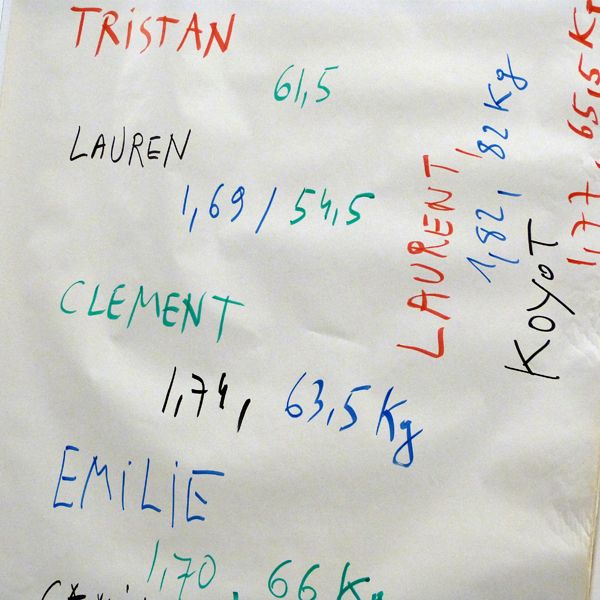 TRISTAN
61,5
LAUREN
1,69 / 54,5
CLEMENT
1,74, 63,5 Kg
EMILIE
1,70, 66 Kg
LAURENT,
1,82, 82 Kg
KOYOT
1,77, 65,5 Kg